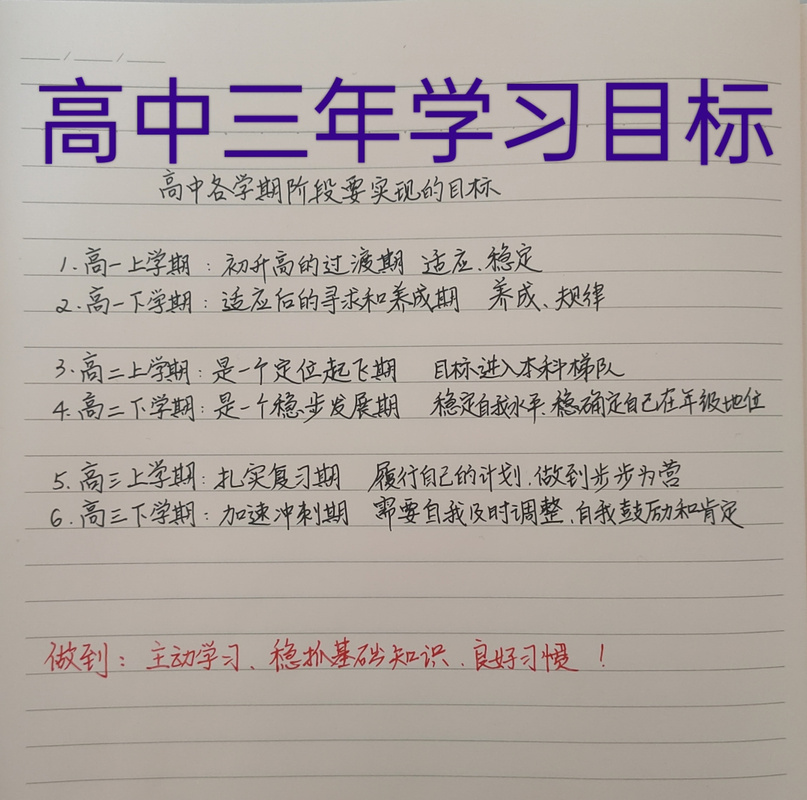 高中三年学习目标
高中各学期阶段要实现的目标
1.高一上学期：初升高的过渡期 适应、稳定
2.高一下学期：适应后的寻求和养成期 养成、规律
3.高二上学期：是一个定位起飞期 目标进入本科梯队
4.高二下学期：是一个稳步发展期 稳定自我水平、稳确定自己在年级地位
5.高三上学期：扎实复习期 履行自己的计划、做到步步为营
6.高三下学期：加速冲刺期 需要自我及时调整、自我鼓励和肯定
做到：主动学习、稳抓基础知识、良好习惯！